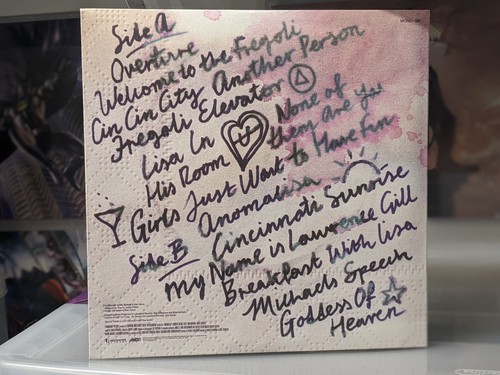 Side A
Overture
Welcome to the Fregoli
Cin Cin City Another Person
Fregoli Elevator
Lisa In
His Room
None of
them are you
Girls Just Want to Have Fun
Anomalisa
Side B
Cincinnati Sunrise
My Name is Lawrence Gill
Breakfast With Lisa
Michaels Speech
Goddess Of
Heaven